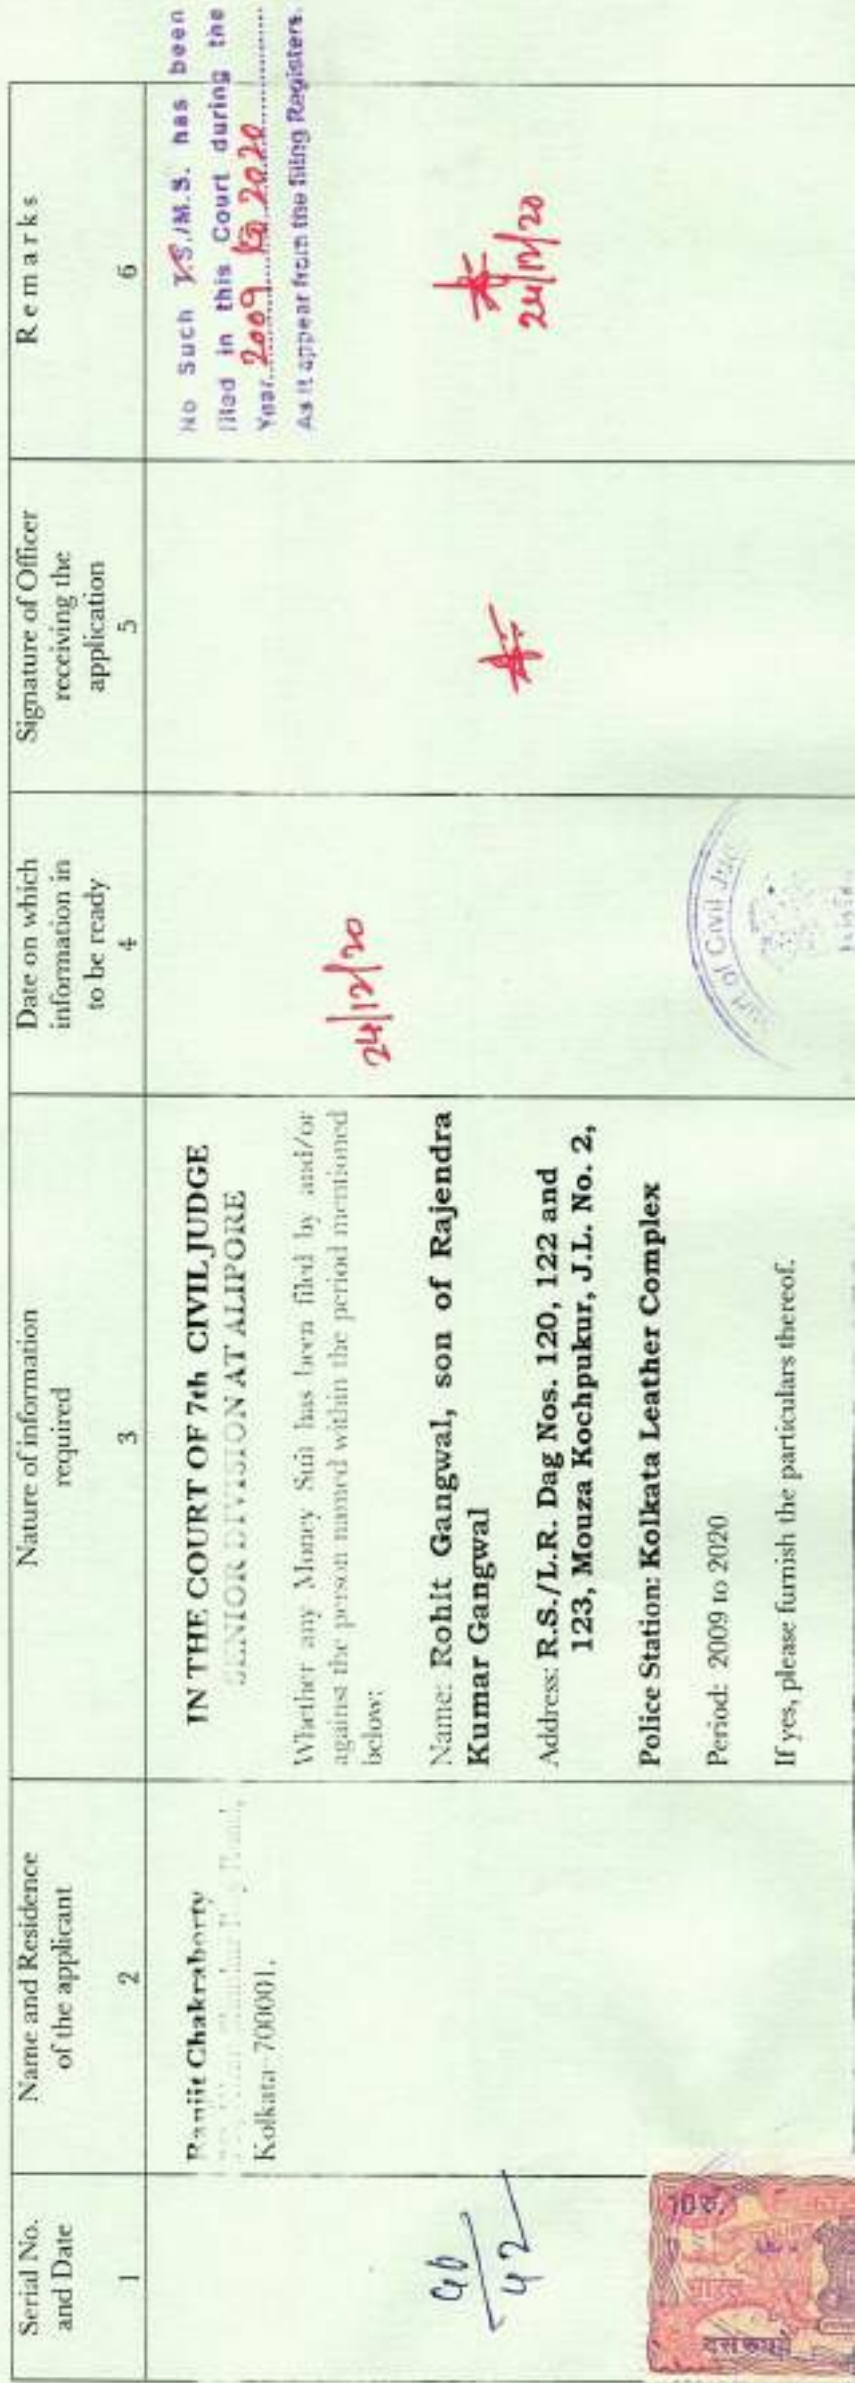 Serial No.
and Date
1
Name and Residence
of the applicant
2
Nature of information
required
3
Date on which
information in
to be ready
4
Signature of Officer
receiving the
application
5
Remarks
6
Ranjit Chakraborty
Kolkata-700001.
IN THE COURT OF 7th CIVIL JUDGE
SENIOR DIVISION AT ALIPORE
Whether any Money Suit has been filed by and/or
against the person named within the period mentioned
below:
Name: Rohit Gangwal, son of Rajendra
Kumar Gangwal
Address: R.S./L.R. Dag Nos. 120, 122 and
123, Mouza Kochpukur, J.L. No. 2,
Police Station: Kolkata Leather Complex
Period: 2009 to 2020
If yes, please furnish the particulars thereof.
24/12/20
No Such T.S./M.S. has been
filed in this Court during the
Year 2009 to 2020
As it appear from the filing Registers.
24/12/20
of Civil
42
10 रु.
भारत
दस रुपये